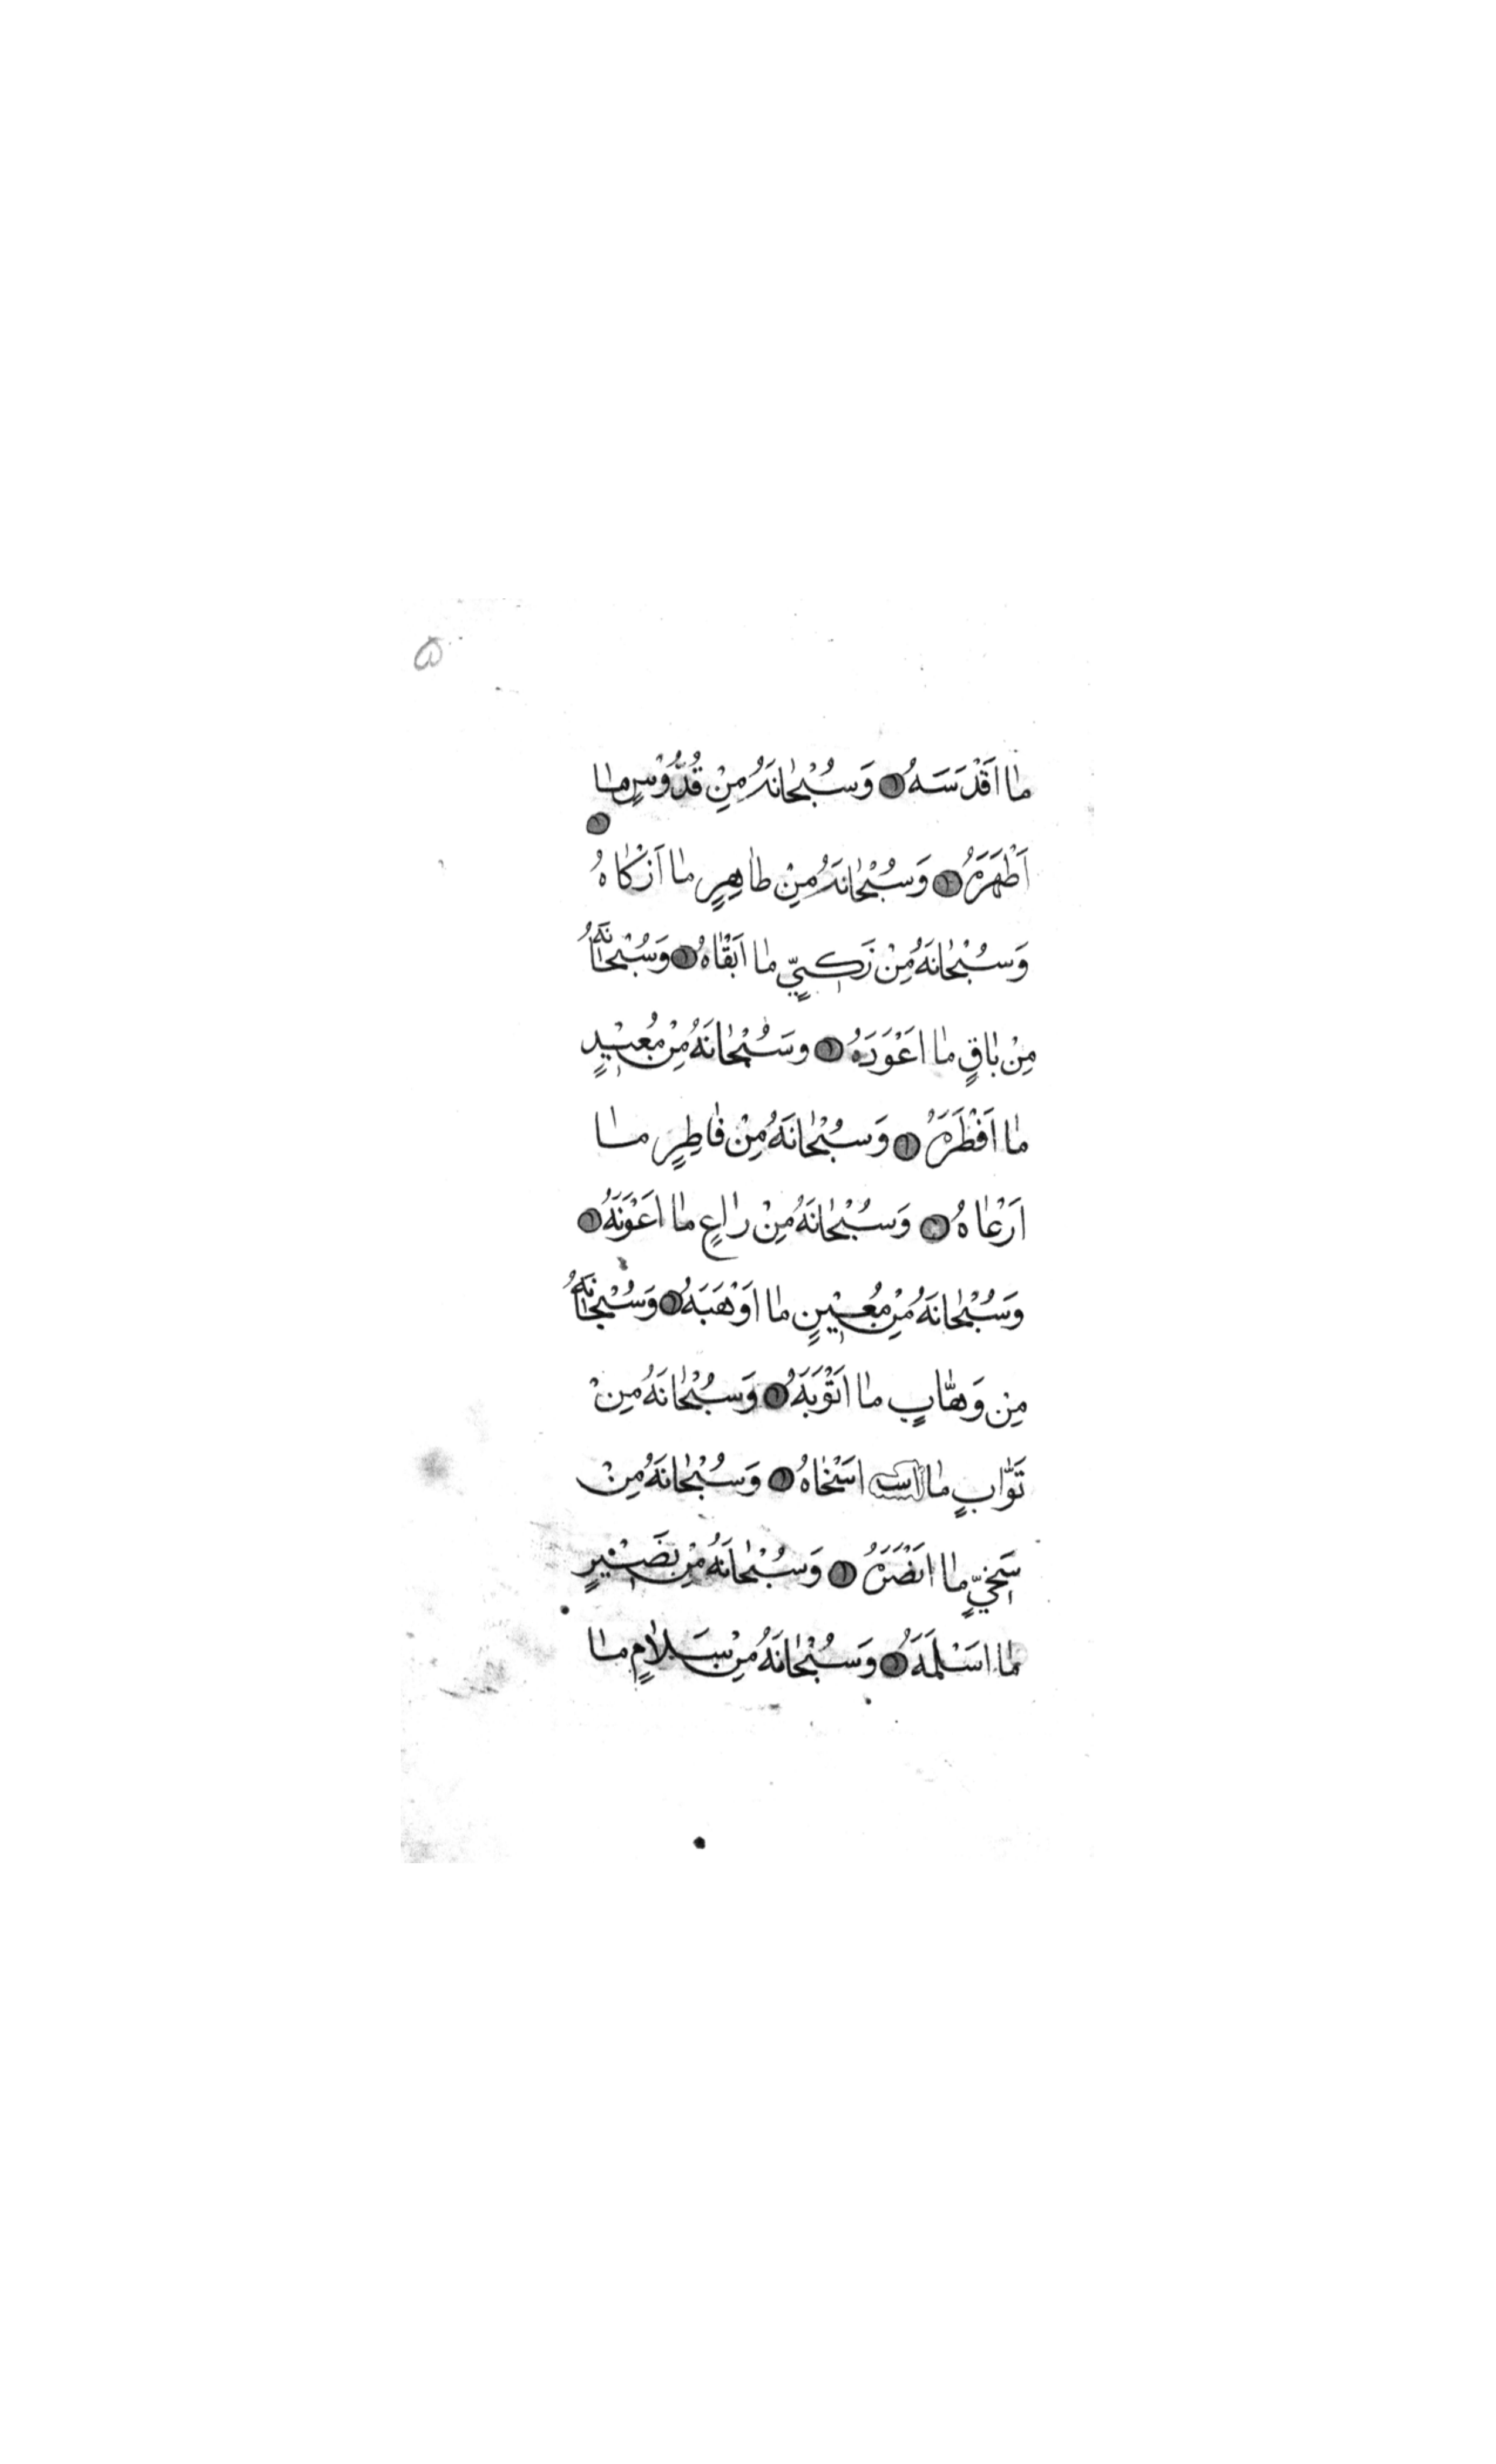 ۵
مٰا اَقْدَسَهُ وَسُبْحٰانَهُ مِنْ قُدُّوْسٍ مٰا
اَطْهَرَهُ وَسُبْحٰانَهُ مِنْ طٰاهِرٍ مٰا اَزْكٰاهُ
وَسُبْحٰانَهُ مِنْ زَكِيٍّ مٰا اَبْقٰاهُ وَسُبْحٰانَهُ
مِنْ بٰاقٍ مٰا اَعْوَدَهُ وَسُبْحٰانَهُ مِنْ مُعِيْدٍ
مٰا اَفْطَرَهُ وَسُبْحٰانَهُ مِنْ فٰاطِرٍ مٰا
اَرْعٰاهُ وَسُبْحٰانَهُ مِنْ رٰاعٍ مٰا اَعْوَنَهُ
وَسُبْحٰانَهُ مِنْ مُعِيْنٍ مٰا اَوْهَبَهُ وَسُبْحٰانَهُ
مِنْ وَهّٰابٍ مٰا اَتْوَبَهُ وَسُبْحٰانَهُ مِنْ
تَوّٰابٍ مٰا اَسْخٰاهُ وَسُبْحٰانَهُ مِنْ
سَخِيٍّ مٰا اَنْضَرَهُ وَسُبْحٰانَهُ مِنْ نَضِيْرٍ
مٰا اَسْلَمَهُ وَسُبْحٰانَهُ مِنْ سَلٰامٍ مٰا